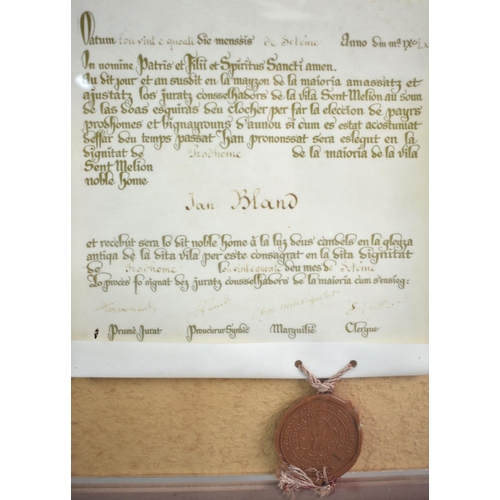 Datum lou vint e quoate die menssis de Seteme Anno dm mº IXc
In nomine Patris et Filii et Spiritus Sancti amen.
Au dit jour et an susdit en la mayzon de la maioria amassatz et
ajustatz los juratz consselhadors de la vila Sent Melion au soun
de las doas esquiras deu clocher per far la eleccion de payrs
prodhomes et vignayrouns d'aunou si cum es estat acostumat
deffar deu temps passat Jhan prononssat sera eslegut en la
dignitat de Prodhome de la maioria de la vila
Sent Melion
noble home
Jan Bland
et recebut sera lo dit noble home à la luz deus candels en la gleyza
antiqa de la dita vila per este consagrat en la dita dignitat
de Prodhome lo vint e quoate deu mes de Seteme
Lo proces fo signat dez juratz consselhadors de la maioria cum s'ensieg:
Prumè Jurat Procurur Syndic Marguilié Clergue